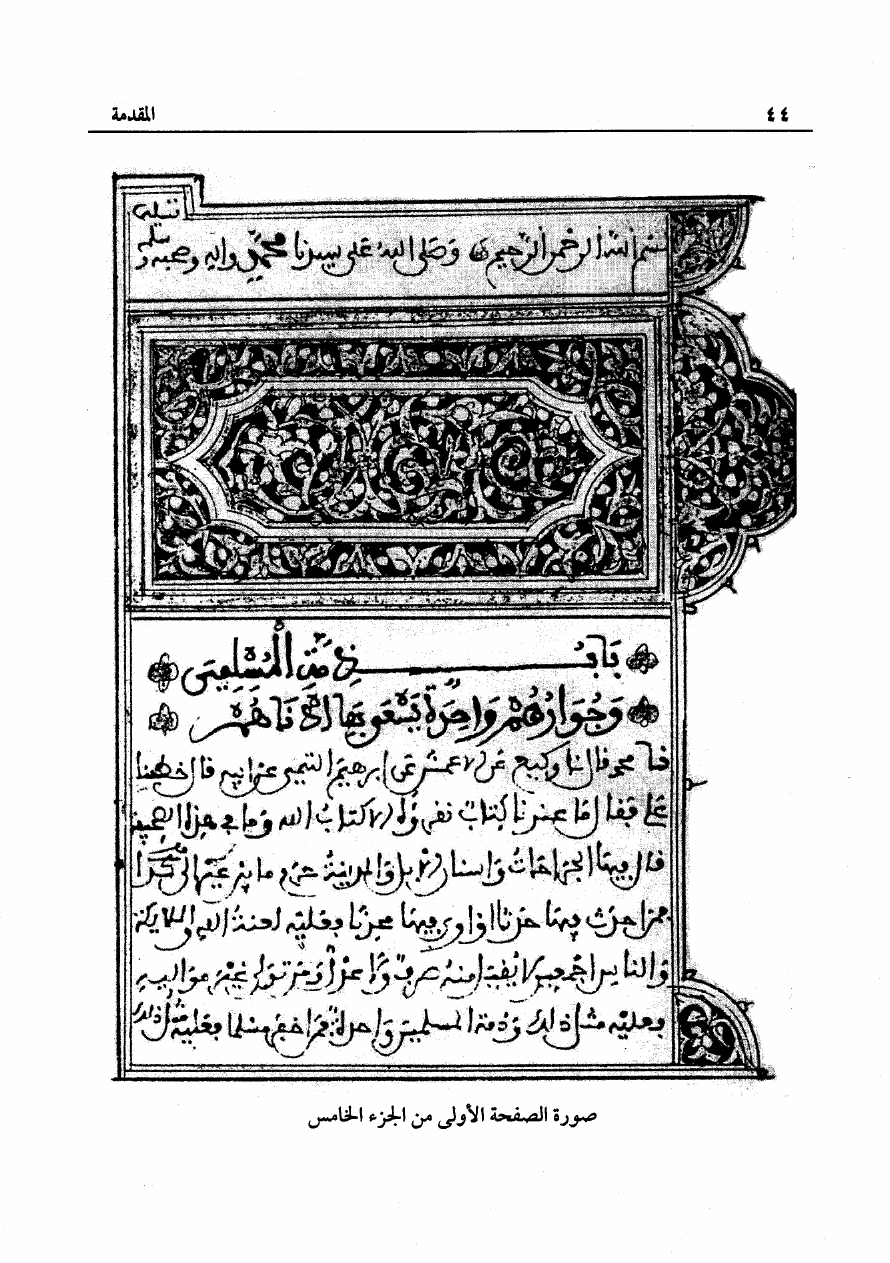 ٤٤ المقدمة
بسم الله الرحمن الرحيم وصلى الله على سيدنا محمد وءاله وصحبه وسلم
تسليما
باب ذمة المسلمين
وجوارهم واحدة يسعى بها أدناهم
محمد قال نا وكيع عن الاعمش عن إبرهيم التيمي عن ابيه قال خطبنا
علي فقال ما عندنا كتاب نقرؤه الا كتاب الله وما في هذه الصحيفة
قال فيها الجراحات واسنان الابل والمدينة حرم ما بين عير الى كذا
فمن احدث فيها حدثا او اوى فيها محدثا فعليه لعنة الله والملايكة
والناس اجمعين لا يقبل منه صرف ولا عدل ومن تولى غير مواليه
فعليه مثل ذلك وذمة المسلمين واحدة فمن اخفر مسلما فعليه مثل ذلك
صورة الصفحة الأولى من الجزء الخامس